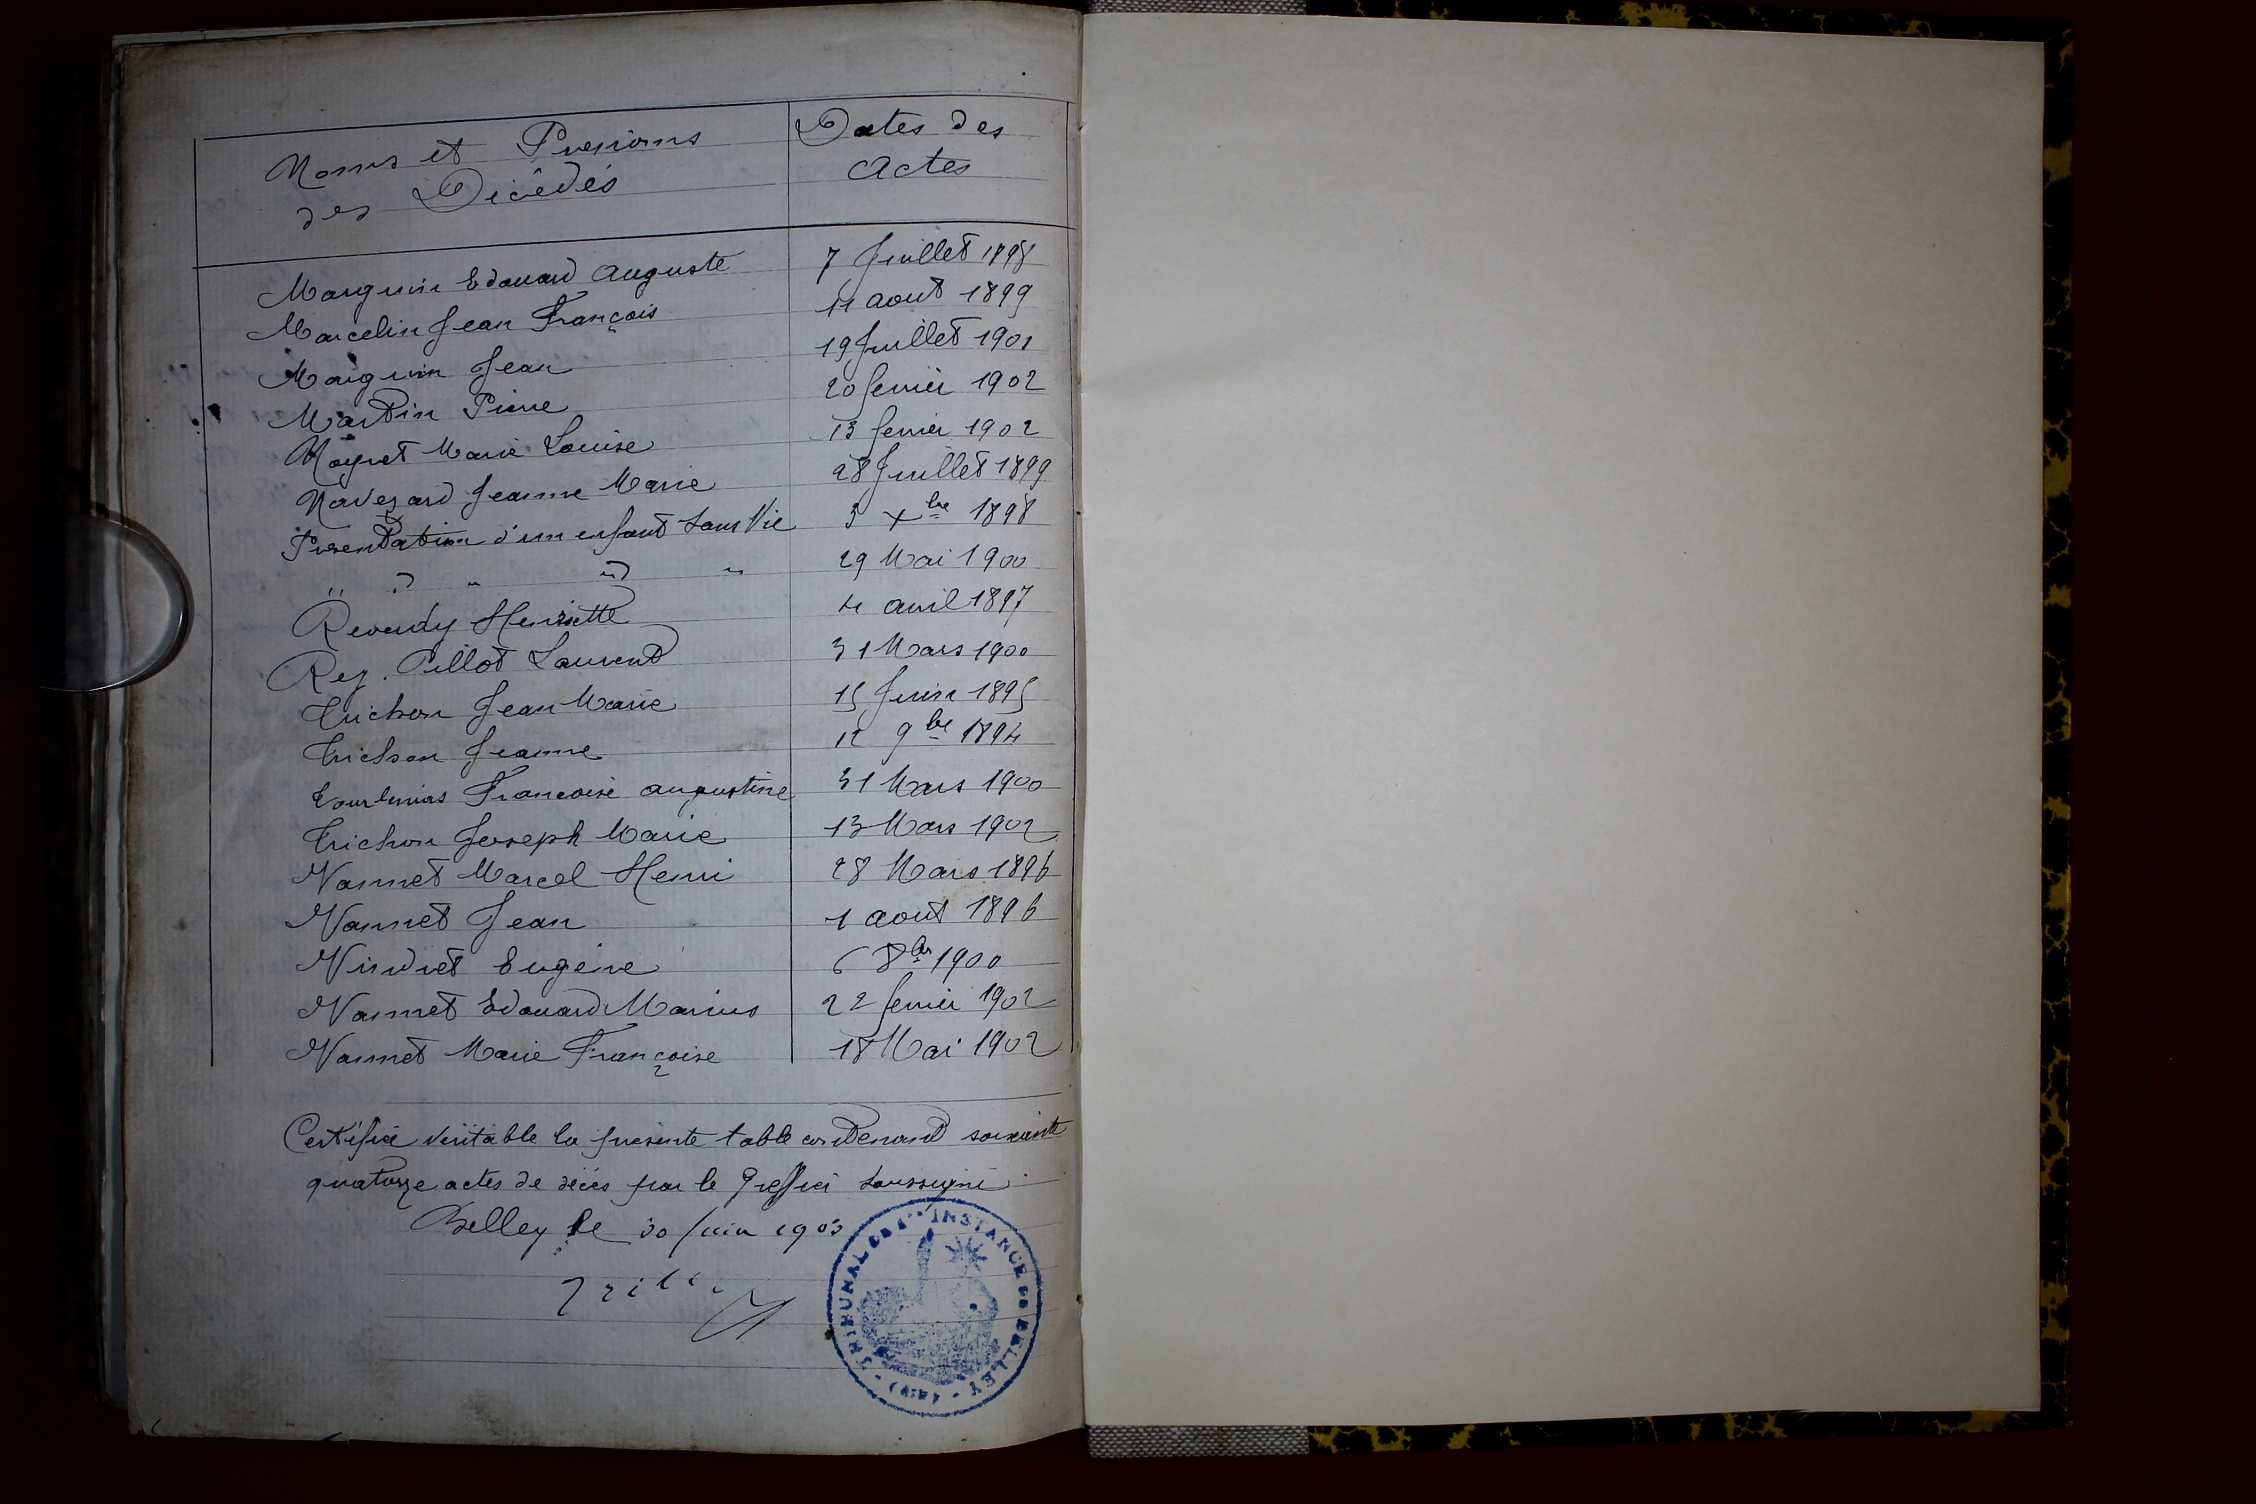 Noms et Prenoms
des Décédés
Dates des
Actes
Marguin Edouard Auguste 7 Juillet 1898
Marcelin Jean François 11 aout 1899
Marguin Jean 19 Juillet 1901
Martin Pierre 20 fevrier 1902
Moyret Marie Louise 13 fevrier 1902
Navezard Jeanne Marie 28 Juillet 1899
Presentation d'un enfant sans Vie 3 Xbre 1898
" " " " 29 Mai 1900
Reverdy Henriette 4 avril 1897
Rey. Pillot Laurent 31 Mars 1900
Trichon Jean Marie 15 Juin 1895
Trichon Jeanne 12 9bre 1894
Françoise augustine 31 Mars 1900
Trichon Joseph Marie 13 Mars 1902
Vannet Marcel Henri 28 Mars 1896
Vannet Jean 1 aout 1896
Vindret Eugène 6 8bre 1900
Vannet Edouard Marius 22 fevrier 1902
Vannet Marie Françoise 18 Mai 1902
Certifié véritable la presente table contenant soixante
quatorze actes de décès par le Greffier soussigné
Belley le 30 Juin 1903
TRIBUNAL DE 1ère INSTANCE DE BELLEY - (AIN) -